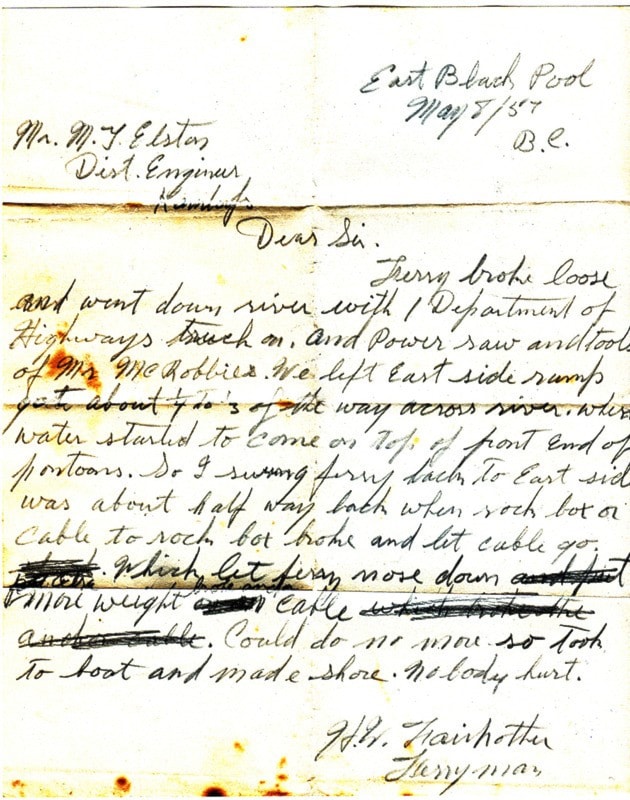 East Black Pool
May 8/57
B.C.
Mr. M. J. Elston
Dist. Engineer
Dear Sir.
Ferry broke loose
and went down river with 1 Department of
Highways truck on. And Power saw and tools
of Mr McRobbies. We left East side ramp
gate about of the way across river. when
water started to come on top of front End of
pontoons. So I swung ferry back to East side
was about half way back when rock box or
Cable to rock box broke and let cable go.
Which let ferry nose down
more weight cable
Could do no more so took
to boat and made shore. Nobody hurt.
H.W.
Ferryman